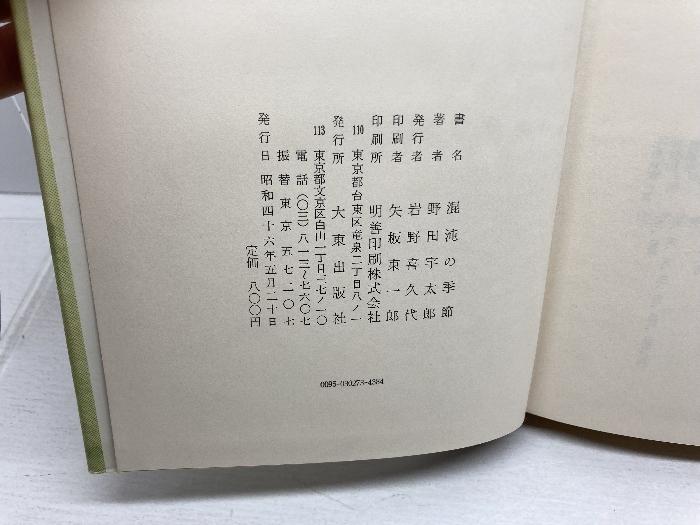 書名 混沌の季節
著者 野田宇太郎
発行者 岩野喜久代
印刷者 矢板東一郎
印刷所 明善印刷株式会社
110 東京都台東区竜泉二丁目八ノ一
発行所 大東出版社
113 東京都文京区白山一丁目三七ノ一〇
電話(〇三)八一三ー七六〇七
振替東京五七二〇七
発行日 昭和四十六年五月二十日
定価 八〇〇円
0095-030273-4384